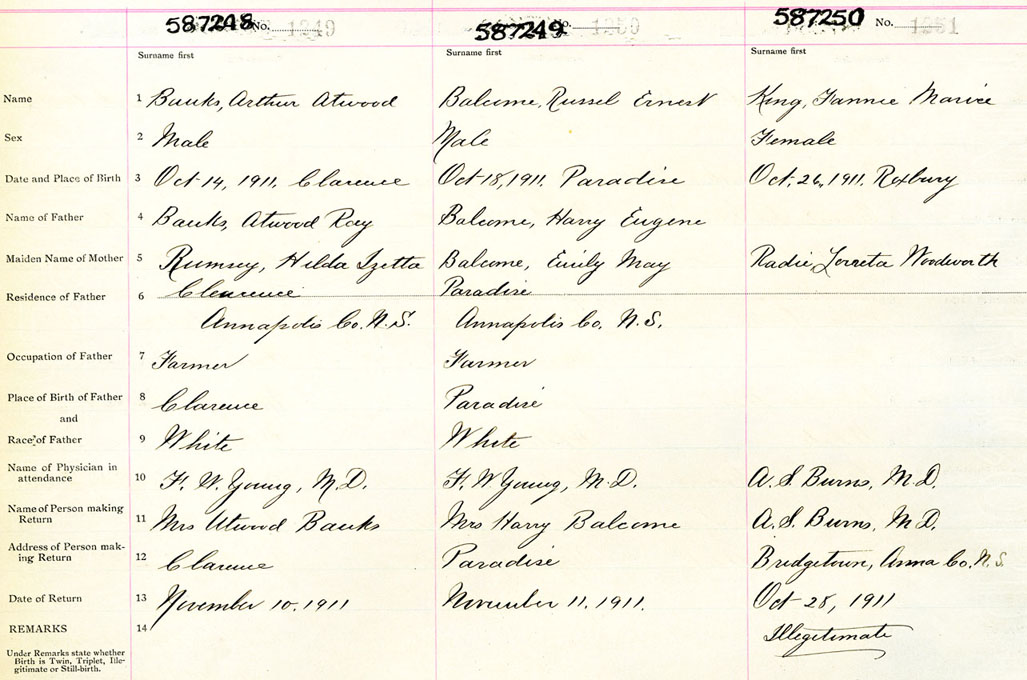 587248 No. 1249 587249 No. 1250 587250 No. 1251
Surname first Surname first Surname first
Name 1 Banks, Arthur Atwood Balcome, Russel Ernest King, Fannie Marice
Sex 2 Male Male Female
Date and Place of Birth 3 Oct 14, 1911. Clarence Oct 18, 1911. Paradise Oct. 26, 1911. Roxbury
Name of Father 4 Banks, Atwood Roey Balcome, Harry Eugene
Maiden Name of Mother 5 Rumsey, Hilda Izetta Balcome, Emily May Radie Lorreta Woodworth
Residence of Father 6 Clearence Paradise
Annapolis Co. N.S. Annapolis Co. N.S.
Occupation of Father 7 Farmer Farmer
Place of Birth of Father 8 Clarence Paradise
and
Race of Father 9 White White
Name of Physician in
attendance 10 F. W. Young, M.D. F. W Young, M.D. A. S. Burns, M.D.
Name of Person making
Return 11 Mrs Atwood Banks Mrs Harry Balcome A. S. Burns, M.D.
Address of Person mak-
ing Return 12 Clarence Paradise Bridgetown, Anna Co. N.S.
Date of Return 13 November 10, 1911 November 11, 1911. Oct 28, 1911
REMARKS 14 Illegitimate
Under Remarks state whether
Birth is Twin, Triplet, Ille-
gitimate or Still-birth.